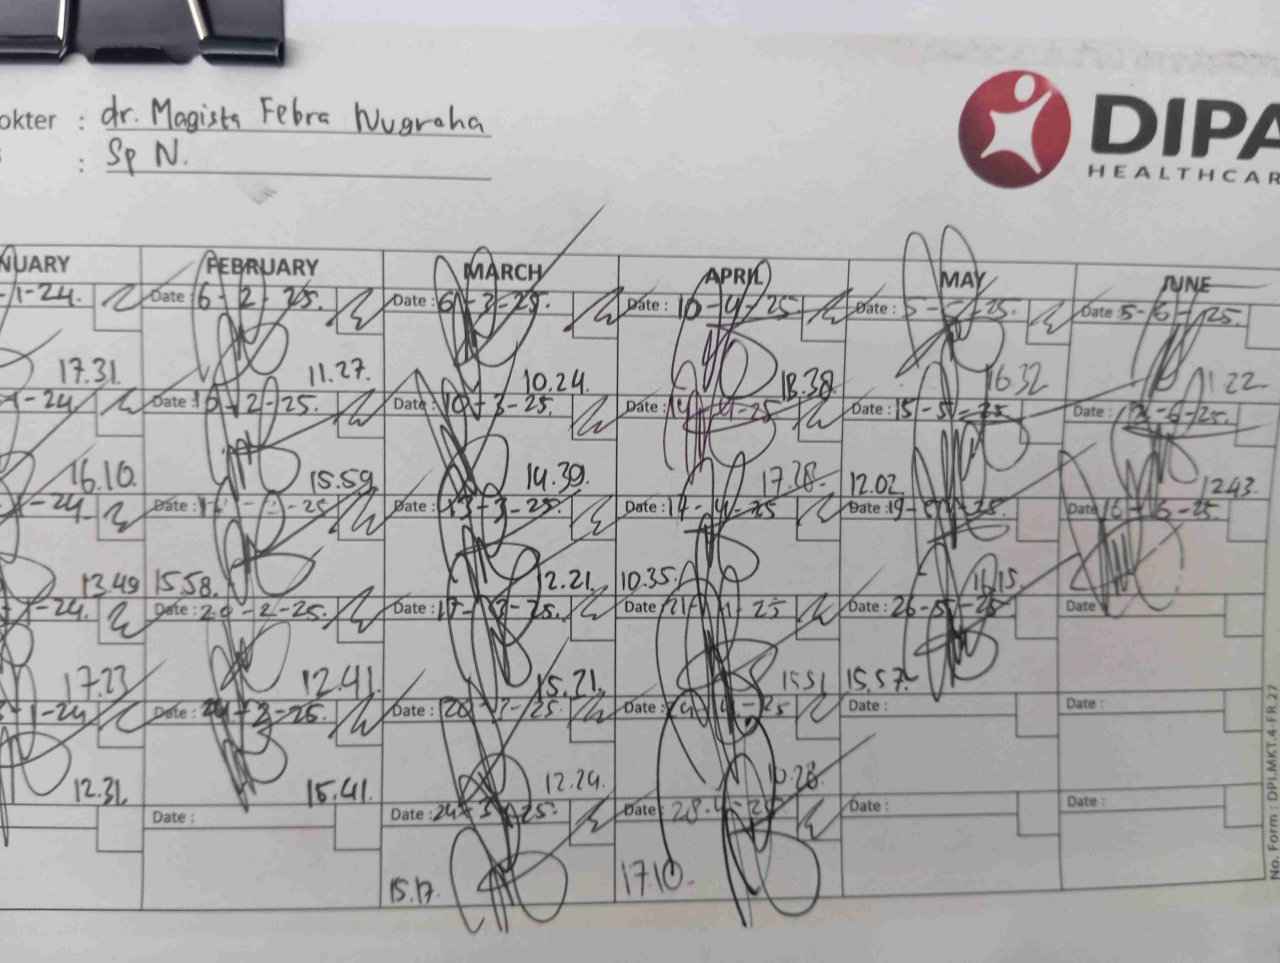 okter : dr. Magista Febra Nugraha
: Sp N.
DIPA
HEALTHCAR
NUARY FEBRUARY MARCH APRIL MAY JUNE
-1-24. Date : 6-2-25. Date : 6-3-25. Date : 10-4-25 Date : 5-5-25. Date : 5-6-25.
17.31. 11.27. 10.24. 18.38 16.32 11.22
-1-24 Date : 10-2-25. Date : 10-3-25. Date : 14-4-25 Date : 15-5-25 Date : 12-6-25.
16.10. 15.59 14.39. 17.28. 12.02 12.43
-24. Date : -2-25 Date : 13-3-25. Date : 17-4-25 Date : 19-5-25. Date : 16-6-25.
13.49 15.58. 12.21. 10.35. 16.15
-24. Date : 20-2-25. Date : 17-3-25. Date : 21-4-25 Date : 26-5-25 Date
17.23 12.41. 15.21. 15.51 15.57.
-1-24 Date : 24-2-25. Date : 20-3-25. Date : 24-4-25 Date : Date :
12.31. 15.41. 12.24. 10.28
Date : Date : 24-3-25. Date : 28-4-25 Date : Date :
15.17. 17.10.
No. Form : DPL.MKT.4-FR.37